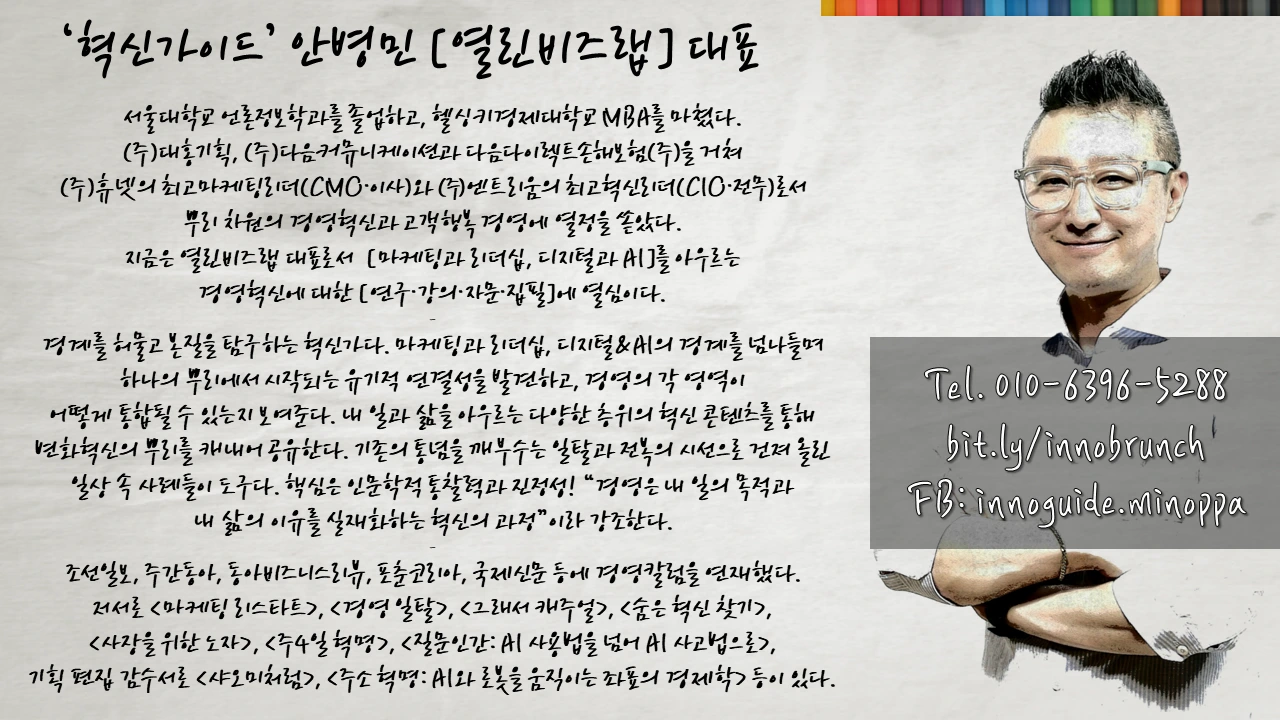 ‘혁신가이드’ 안병민 [열린비즈랩] 대표
서울대학교 언론정보학과를 졸업하고, 헬싱키경제대학교 MBA를 마쳤다.
(주)대홍기획, (주)다음커뮤니케이션과 다음다이렉트손해보험(주)을 거쳐
(주)휴넷의 최고마케팅리더(CMO·이사)와 (주)엔트리움의 최고혁신리더(CIO·전무)로서
무리 차원의 경영혁신과 고객행복 경영에 열정을 쏟았다.
지금은 열린비즈랩 대표로서 [마케팅과 리더십, 디지털과 AI]를 아우르는
경영혁신에 대한 [연구·강의·자문·집필]에 열심이다.
-
경계를 허물고 본질을 탐구하는 혁신가다. 마케팅과 리더십, 디지털&AI의 경계를 넘나들며
하나의 뿌리에서 시작되는 유기적 연결성을 발견하고, 경영의 각 영역이
어떻게 통합될 수 있는지 보여준다. 내 일과 삶을 아우르는 다양한 층위의 혁신 콘텐츠를 통해
변화혁신의 뿌리를 캐내어 공유한다. 기존의 통념을 깨부수는 일탈과 전복의 시선으로 건져 올린
일상 속 사례들이 도구다. 핵심은 인문학적 통찰력과 진정성! “경영은 내 일의 목적과
내 삶의 이유를 실재화하는 혁신의 과정”이라 강조한다.
-
조선일보, 주간동아, 동아비즈니스리뷰, 포춘코리아, 국제신문 등에 경영칼럼을 연재했다.
저서로 <마케팅 리스타트>, <경영 일탈>, <그래서 캐주얼>, <숨은 혁신 찾기>,
<사장을 위한 노자>, <주4일 혁명>, <질문인간: AI 사용법을 넘어 AI 사고법으로>,
기획 편집 감수서로 <샤오미처럼>, <주소 혁명: AI와 로봇을 움직이는 좌표의 경제학> 등이 있다.
Tel. 010-6396-5288
bit.ly/innobrunch
FB: innoguide.minoppa